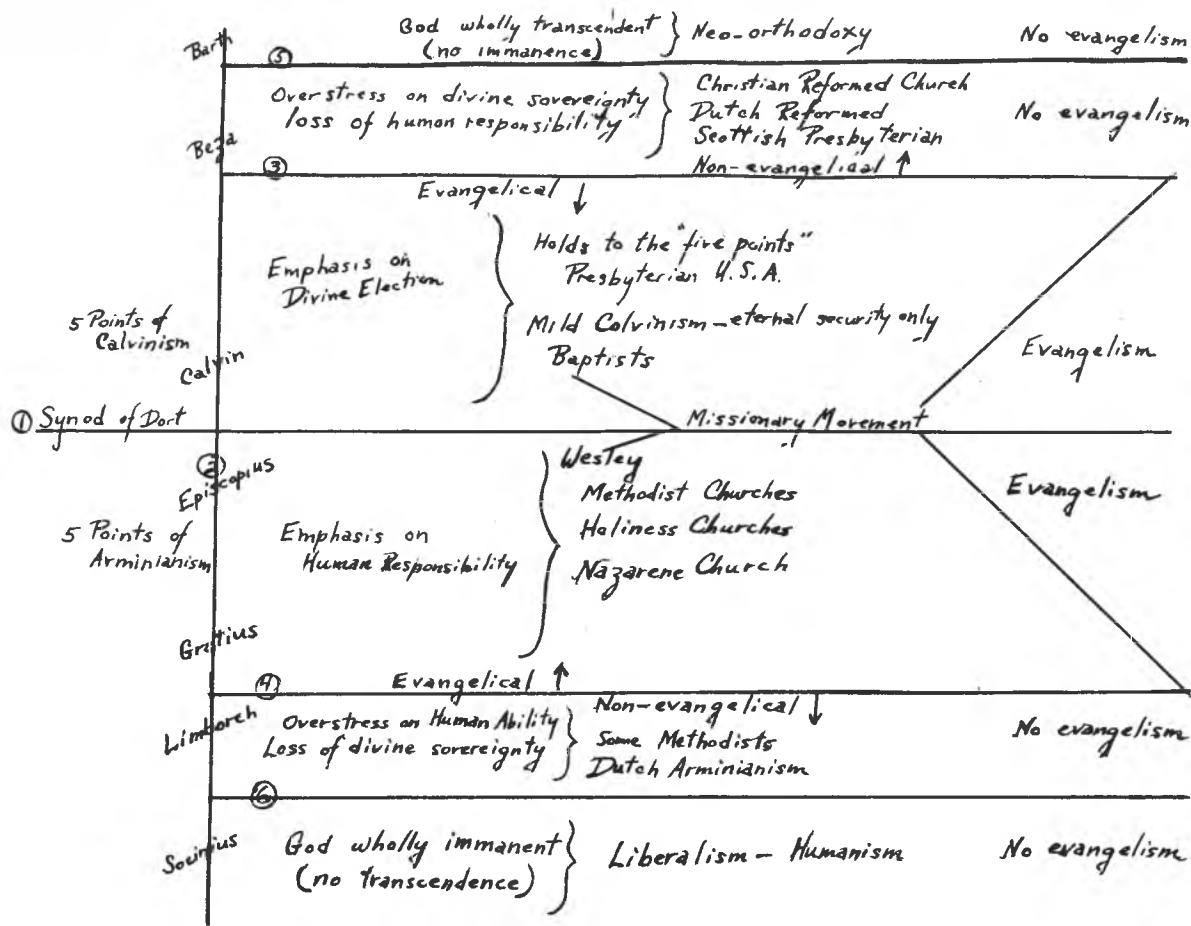 Barth
⑤
God wholly transcendent
(no immanence)
Neo-orthodoxy
No evangelism
Beza
Overstress on divine sovereignty
loss of human responsibility
Christian Reformed Church
Dutch Reformed
Scottish Presbyterian
No evangelism
③
Non-evangelical ↑
Evangelical ↓
Emphasis on
Divine Election
Holds to the "five points"
Presbyterian U.S.A.
Mild Calvinism - eternal security only
Baptists
Evangelism
5 Points of
Calvinism
Calvin
① Synod of Dort
Missionary Movement
②
Episcopius
5 Points of
Arminianism
Emphasis on
Human Responsibility
Wesley
Methodist Churches
Holiness Churches
Nazarene Church
Evangelism
Grotius
④
Evangelical ↑
Non-evangelical ↓
Limborch
Overstress on Human Ability
Loss of divine sovereignty
Some Methodists
Dutch Arminianism
No evangelism
⑥
Socinius
God wholly immanent
(no transcendence)
Liberalism - Humanism
No evangelism